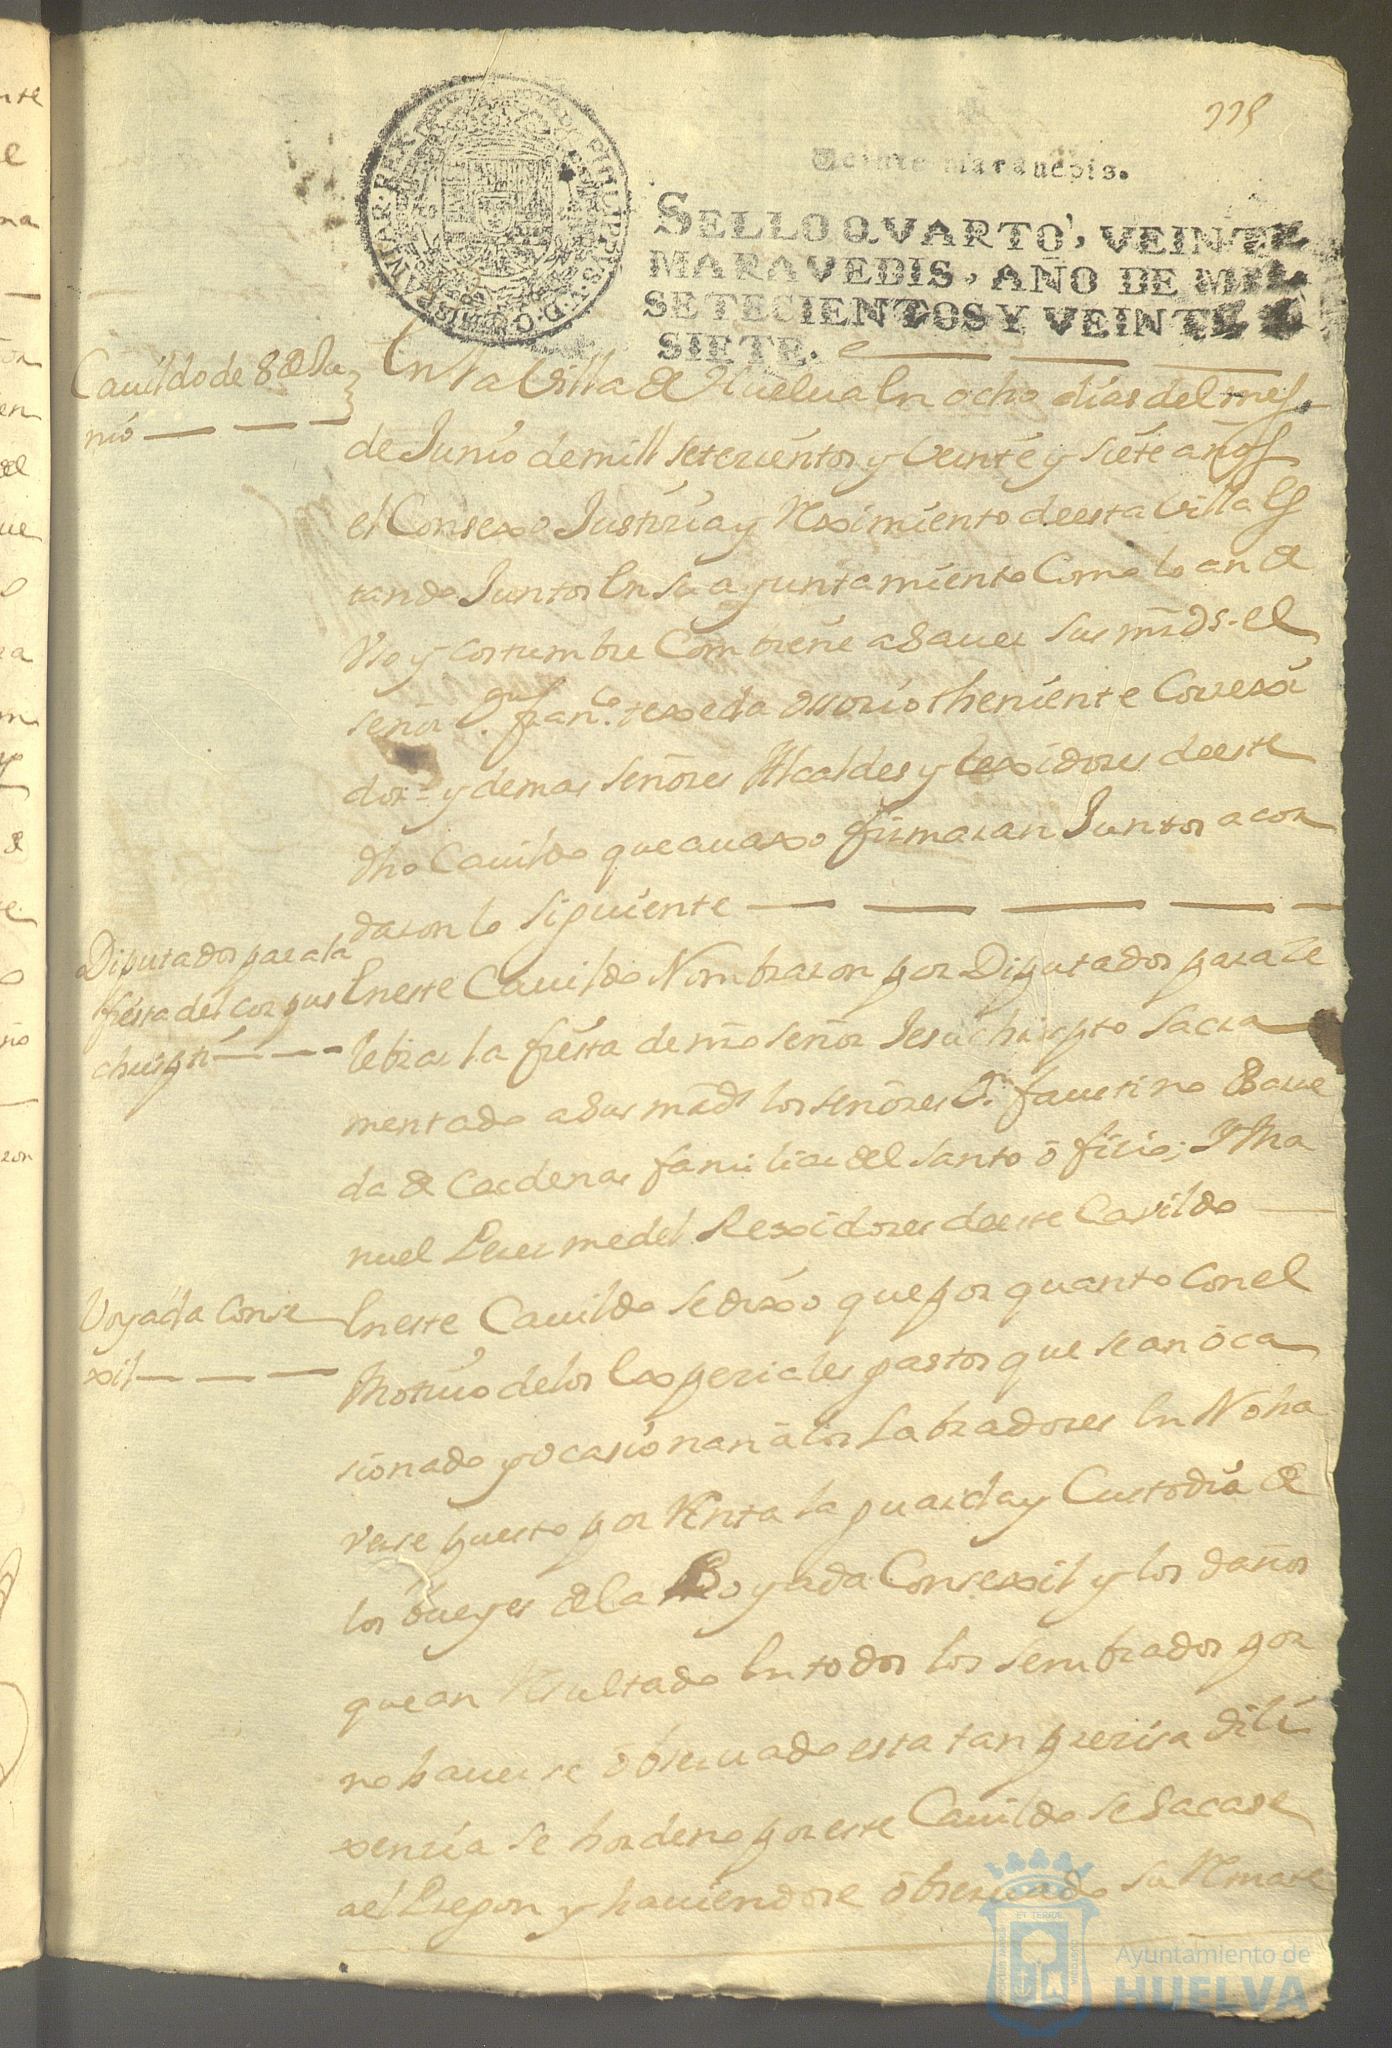 225
Veinte maravedis.
SELLO QVARTO, VEINTE
MARAVEDIS, AÑO DE MIL
SETECIENTOS Y VEINTE
SIETE.
Cauildo de 8 de Ju
nio
En la Villa de Huelua En ocho dias del mes
de Junio de mill setezientos y Veinte y siete años
el Consexo Justizia y Reximiento de esta Villa Es
tando Juntos En su ayuntamiento Como lo an de
Vso y costumbre Combiene a Sauer sus mrds. el
señor Dn. franco. texeda ossorio theniente Correxi
dor y demas señores Alcaldes y rexidores de este
dho Cauildo que auaxo firmaran Juntos acor
daron lo siguiente
Diputados para la
fiesta del corpus
chripti
En este Cauildo Nombraron por Diputados para Ce
lebrar la fiesta de nro señor Jesuchripto Sacra
mentado a Sus mrds los señores Dn. faustino Barre
da de Cardenas familiar del santo ofizio; Y Ma
nuel Perez medel Rexidores de este Cavildo
Voyada Conse
xil
En este Cauildo se dixo que por quanto Con el
Motiuo de los Experiales gastos que se an oca
sionado y ocasionan a los Labradores En No ha
verse puesto por Renta la guarda y Custodia de
los bueyes de la Boyada Consexil y los daños
que an Resultado En todos los sembrados por
no hauerse obseruado esta tan prezisa dili
xenzia se hordeno por este Cauildo se Sacase
al Pregon y hauiendose obseruado su Remate
ET TERRAE
Ayuntamiento de
HUELVA